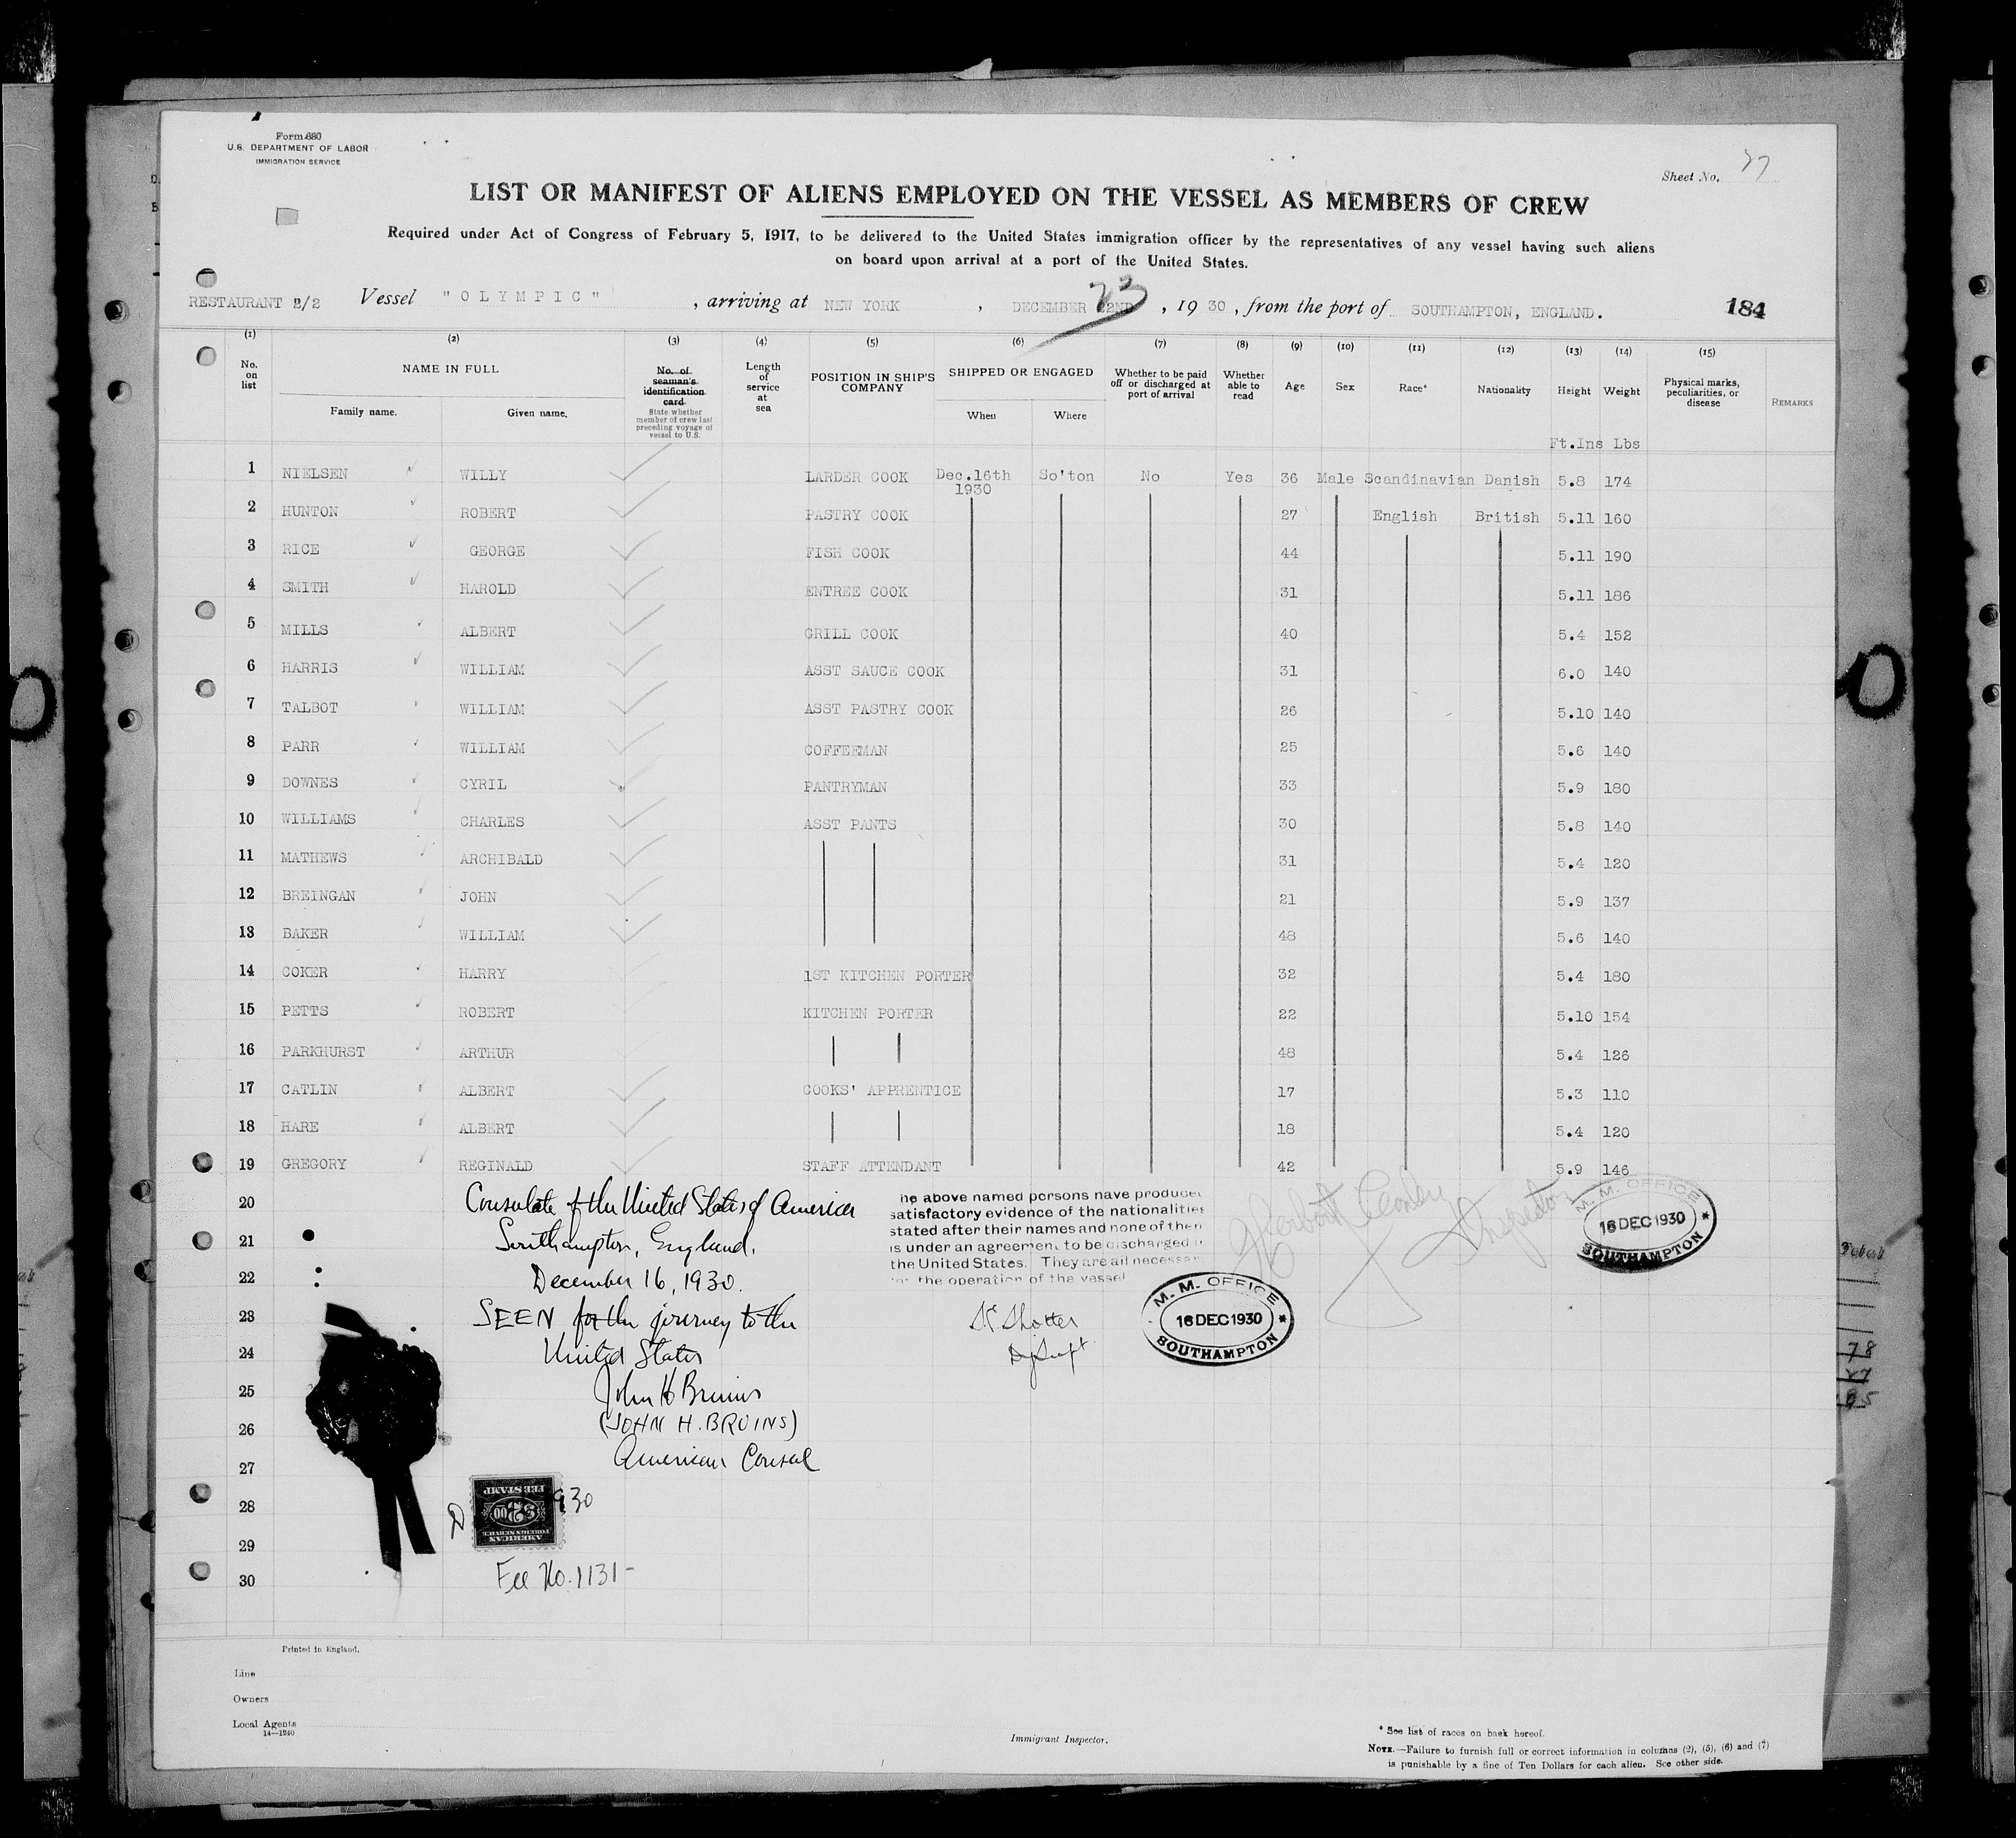 Form 680
U.S. DEPARTMENT OF LABOR
IMMIGRATION SERVICE
Sheet No. 27
LIST OR MANIFEST OF ALIENS EMPLOYED ON THE VESSEL AS MEMBERS OF CREW
Required under Act of Congress of February 5, 1917, to be delivered to the United States immigration officer by the representatives of any vessel having such aliens
on board upon arrival at a port of the United States.
RESTAURANT 2/2 Vessel "OLYMPIC", arriving at NEW YORK, DECEMBER 22ND 23, 1930, from the port of SOUTHAMPTON, ENGLAND. 184
(1) (2) (3) (4) (5) (6) (7) (8) (9) (10) (11) (12) (13) (14) (15)
No. on list NAME IN FULL Family name. Given name. No. of seaman's identification card State whether member of crew last preceding voyage of vessel to U.S. Length of service at sea POSITION IN SHIP'S COMPANY SHIPPED OR ENGAGED When Where Whether to be paid off or discharged at port of arrival Whether able to read Age Sex Race* Nationality Height Weight Physical marks, peculiarities, or disease REMARKS
Ft.Ins Lbs
1 NIELSEN WILLY LARDER COOK Dec.16th 1930 So'ton No Yes 36 Male Scandinavian Danish 5.8 174
2 HUNTON ROBERT PASTRY COOK 27 English British 5.11 160
3 RICE GEORGE FISH COOK 44 5.11 190
4 SMITH HAROLD ENTREE COOK 31 5.11 186
5 MILLS ALBERT GRILL COOK 40 5.4 152
6 HARRIS WILLIAM ASST SAUCE COOK 31 6.0 140
7 TALBOT WILLIAM ASST PASTRY COOK 26 5.10 140
8 PARR WILLIAM COFFEEMAN 25 5.6 140
9 DOWNES CYRIL PANTRYMAN 33 5.9 180
10 WILLIAMS CHARLES ASST PANTS 30 5.8 140
11 MATHEWS ARCHIBALD 31 5.4 120
12 BREINGAN JOHN 21 5.9 137
13 BAKER WILLIAM 48 5.6 140
14 COKER HARRY 1ST KITCHEN PORTER 32 5.4 180
15 PETTS ROBERT KITCHEN PORTER 22 5.10 154
16 PARKHURST ARTHUR 48 5.4 126
17 CATLIN ALBERT COOKS' APPRENTICE 17 5.3 110
18 HARE ALBERT 18 5.4 120
19 GREGORY REGINALD STAFF ATTENDANT 42 5.9 146
20
21
22
23
24
25
26
27
28
29
30
Consulate of the United States of America
Southampton, England.
December 16, 1930.
SEEN for the journey to the
United States
John H Bruins
(JOHN H. BRUINS)
American Consul
he above named persons have produce
satisfactory evidence of the nationalities
stated after their names and none of then
is under an agreement to be discharged i
the United States. They are all necessa
the operation of the vessel
Inspector
M. M. OFFICE
16 DEC 1930
SOUTHAMPTON
M. M. OFFICE
16 DEC 1930
SOUTHAMPTON
D 930
AMERICAN
FOREIGN SERVICE
$3.00
FEE STAMP
Fee No. 1131-
Printed in England.
Line
Owners
Local Agents
14—1240
Immigrant Inspector.
* See list of races on back hereof.
NOTE.—Failure to furnish full or correct information in columns (2), (5), (6) and (7)
is punishable by a fine of Ten Dollars for each alien. See other side.
78